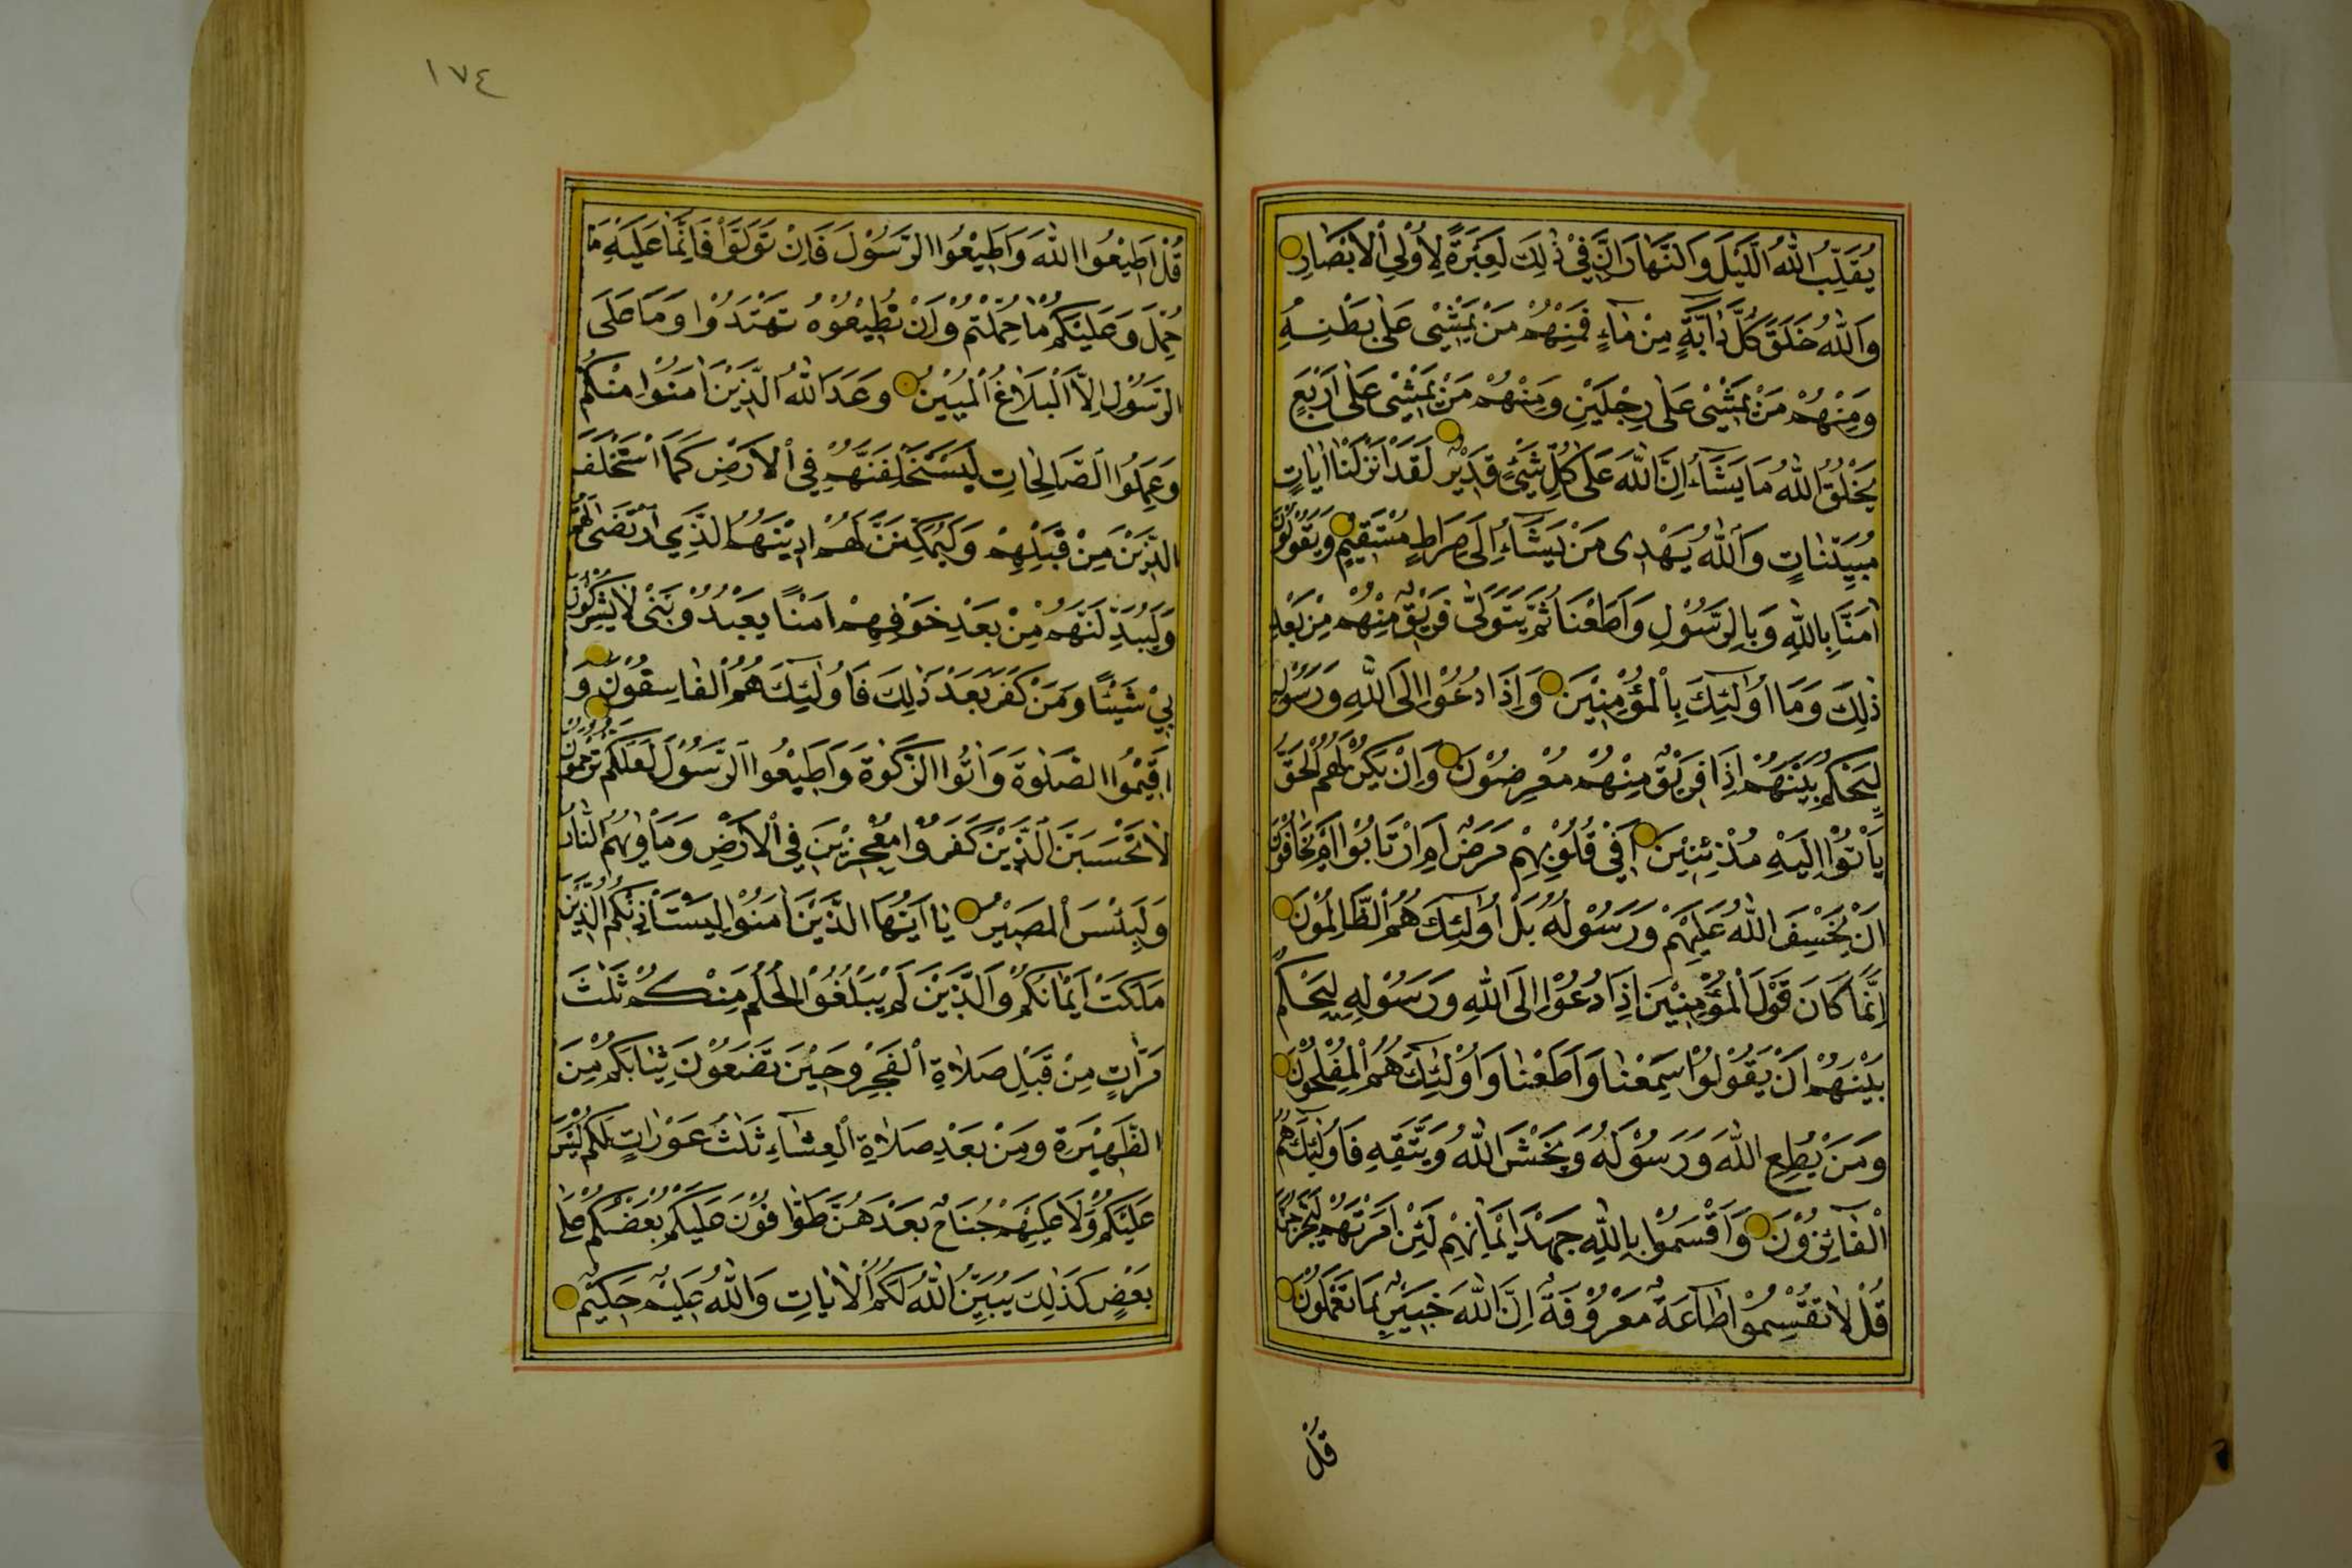 يُقَلِّبُ اللّٰهُ الَّيْلَ وَالنَّهَارَ اِنَّ فِيْ ذٰلِكَ لَعِبْرَةً لِاُولِي الْاَبْصَارِ
وَاللّٰهُ خَلَقَ كُلَّ دَابَّةٍ مِنْ مَاءٍ فَمِنْهُمْ مَنْ يَمْشِيْ عَلٰى بَطْنِهِ
وَمِنْهُمْ مَنْ يَمْشِيْ عَلٰى رِجْلَيْنِ وَمِنْهُمْ مَنْ يَمْشِيْ عَلٰى اَرْبَعٍ
يَخْلُقُ اللّٰهُ مَا يَشَآءُ اِنَّ اللّٰهَ عَلٰى كُلِّ شَيْئٍ قَدِيْرٌ لَقَدْ اَنْزَلْنَا اٰيَاتٍ
مُبَيِّنَاتٍ وَاللّٰهُ يَهْدِى مَنْ يَشَآءُ اِلَى صِرَاطٍ مُسْتَقِيْمٍ وَيَقُوْلُوْنَ
اٰمَنَّا بِاللّٰهِ وَبِالرَّسُوْلِ وَاَطَعْنَا ثُمَّ يَتَوَلّٰى فَرِيْقٌ مِنْهُمْ مِنْ بَعْدِ
ذٰلِكَ وَمَا اُولٰٓئِكَ بِالْمُؤْمِنِيْنَ وَاِذَا دُعُوْا اِلَى اللّٰهِ وَرَسُوْلِهِ
لِيَحْكُمَ بَيْنَهُمْ اِذَا فَرِيْقٌ مِنْهُمْ مُعْرِضُوْنَ وَاِنْ يَكُنْ لَهُمُ الْحَقُّ
يَاْتُوْا اِلَيْهِ مُذْعِنِيْنَ اَفِيْ قُلُوْبِهِمْ مَرَضٌ اَمِ ارْتَابُوْا اَمْ يَخَافُوْنَ
اَنْ يَخْسِفَ اللّٰهُ عَلَيْهِمْ وَرَسُوْلُهُ بَلْ اُولٰٓئِكَ هُمُ الظَّالِمُوْنَ
اِنَّمَا كَانَ قَوْلَ الْمُؤْمِنِيْنَ اِذَا دُعُوْا اِلَى اللّٰهِ وَرَسُوْلِهِ لِيَحْكُمَ
بَيْنَهُمْ اَنْ يَقُوْلُوْا سَمِعْنَا وَاَطَعْنَا وَاُولٰٓئِكَ هُمُ الْمُفْلِحُوْنَ
وَمَنْ يُطِعِ اللّٰهَ وَرَسُوْلَهُ وَيَخْشَ اللّٰهَ وَيَتَّقِهِ فَاُولٰٓئِكَ هُمُ
الْفَآئِزُوْنَ وَاَقْسَمُوْا بِاللّٰهِ جَهْدَ اَيْمَانِهِمْ لَئِنْ اَمَرْتَهُمْ لَيَخْرُجُنَّ
قُلْ لَا تُقْسِمُوْا طَاعَةٌ مَعْرُوْفَةٌ اِنَّ اللّٰهَ خَبِيْرٌ بِمَا تَعْمَلُوْنَ
قُلْ
١٧٤
قُلْ اَطِيْعُوا اللّٰهَ وَاَطِيْعُوا الرَّسُوْلَ فَاِنْ تَوَلَّوْا فَاِنَّمَا عَلَيْهِ مَا
حُمِّلَ وَعَلَيْكُمْ مَا حُمِّلْتُمْ وَاِنْ تُطِيْعُوْهُ تَهْتَدُوْا وَمَا عَلَى
الرَّسُوْلِ اِلَّا الْبَلَاغُ الْمُبِيْنُ وَعَدَ اللّٰهُ الَّذِيْنَ اٰمَنُوْا مِنْكُمْ
وَعَمِلُوا الصَّالِحَاتِ لَيَسْتَخْلِفَنَّهُمْ فِي الْاَرْضِ كَمَا اسْتَخْلَفَ
الَّذِيْنَ مِنْ قَبْلِهِمْ وَلَيُمَكِّنَنَّ لَهُمْ دِيْنَهُمُ الَّذِي ارْتَضٰى لَهُمْ
وَلَيُبَدِّلَنَّهُمْ مِنْ بَعْدِ خَوْفِهِمْ اَمْنًا يَعْبُدُوْنَنِيْ لَا يُشْرِكُوْنَ
بِيْ شَيْئًا وَمَنْ كَفَرَ بَعْدَ ذٰلِكَ فَاُولٰٓئِكَ هُمُ الْفَاسِقُوْنَ وَ
اَقِيْمُوا الصَّلٰوةَ وَاٰتُوا الزَّكٰوةَ وَاَطِيْعُوا الرَّسُوْلَ لَعَلَّكُمْ تُرْحَمُوْنَ
لَا تَحْسَبَنَّ الَّذِيْنَ كَفَرُوْا مُعْجِزِيْنَ فِي الْاَرْضِ وَمَاْوٰيهُمُ النَّارُ
وَلَبِئْسَ الْمَصِيْرُ يَا اَيُّهَا الَّذِيْنَ اٰمَنُوْا لِيَسْتَاْذِنْكُمُ الَّذِيْنَ
مَلَكَتْ اَيْمَانُكُمْ وَالَّذِيْنَ لَمْ يَبْلُغُوا الْحُلُمَ مِنْكُمْ ثَلٰثَ
مَرَّاتٍ مِنْ قَبْلِ صَلَاةِ الْفَجْرِ وَحِيْنَ تَضَعُوْنَ ثِيَابَكُمْ مِنَ
الظَّهِيْرَةِ وَمِنْ بَعْدِ صَلَاةِ الْعِشَآءِ ثَلٰثُ عَوْرَاتٍ لَكُمْ لَيْسَ
عَلَيْكُمْ وَلَا عَلَيْهِمْ جُنَاحٌ بَعْدَهُنَّ طَوَّافُوْنَ عَلَيْكُمْ بَعْضُكُمْ عَلٰى
بَعْضٍ كَذٰلِكَ يُبَيِّنُ اللّٰهُ لَكُمُ الْاٰيَاتِ وَاللّٰهُ عَلِيْمٌ حَكِيْمٌ